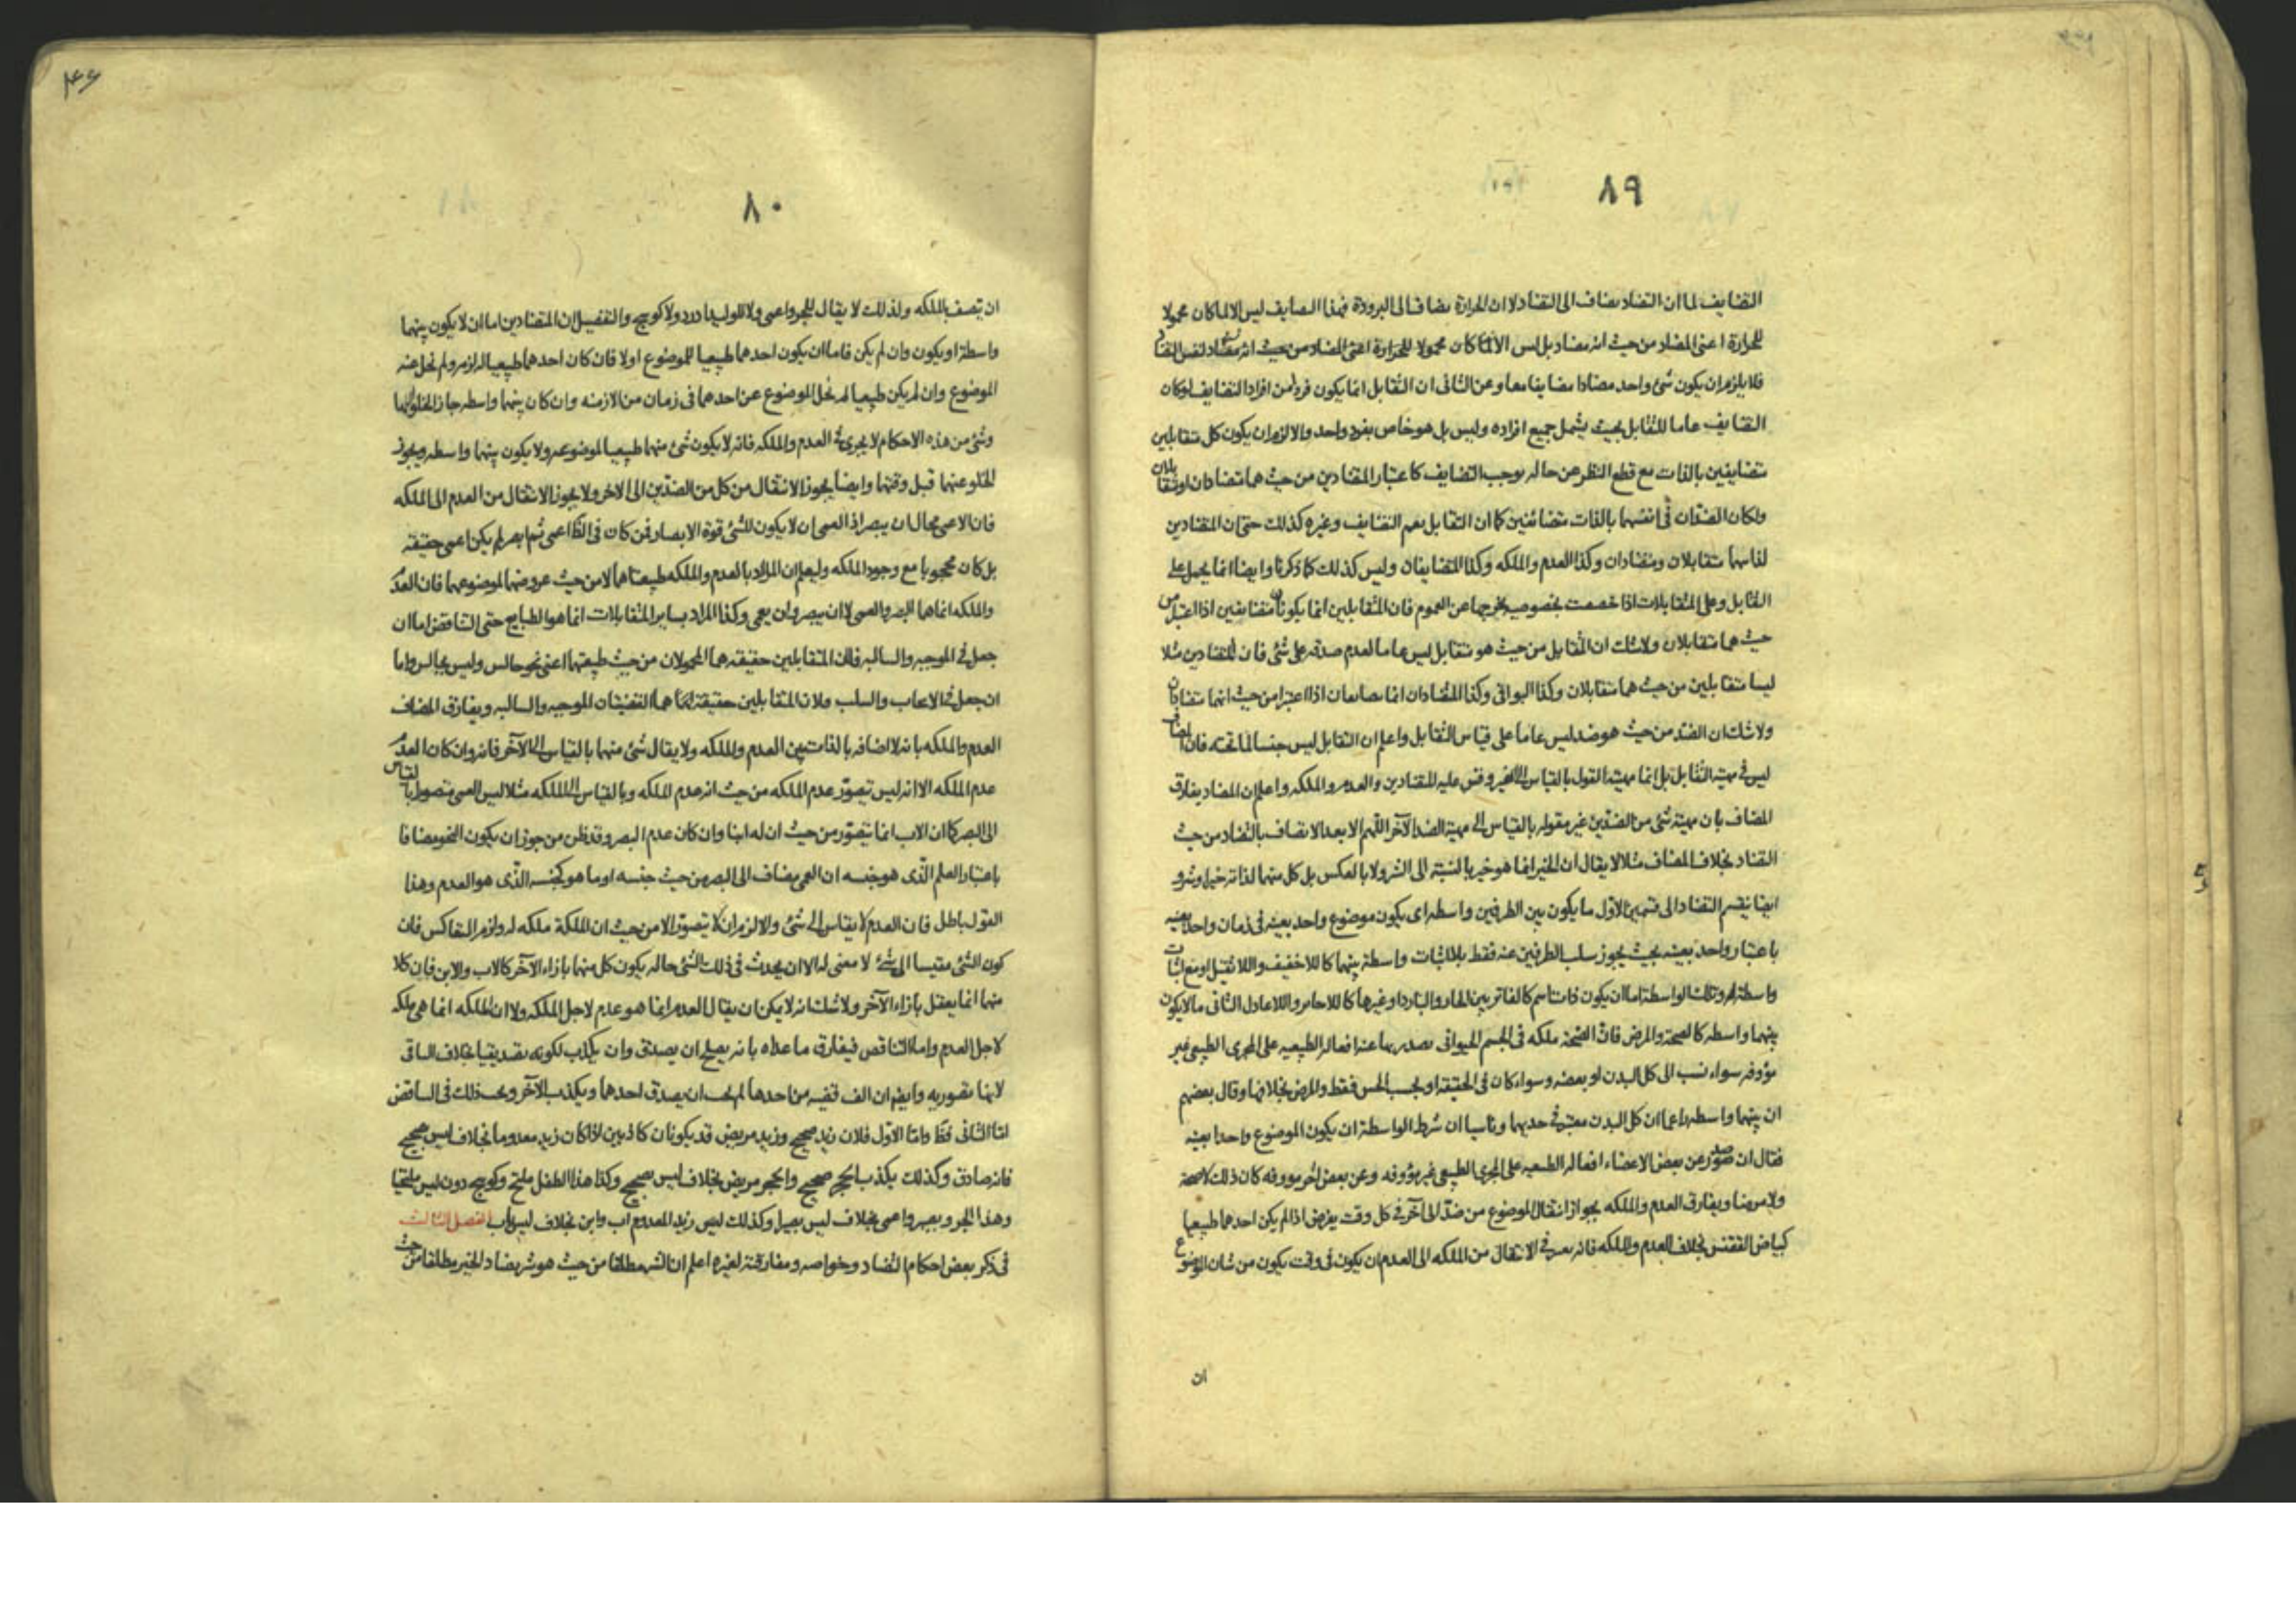 ٨٩
التضايف لما ان التضاد يضاف الى التضاد لا ان الحرارة يضاف الى البرودة فهذا التضايف ليس الا لما كان محمولا
للحرارة اعنى المضاد من حيث انه مضاد بل ليس الا لما كان محمولا للحرارة اعنى المضاد من حيث انه مضاد لنفس
فلا يلزم ان يكون شئ واحد مضادا مضايفا معا وعن الثانى ان التقابل انما يكون فردا من افراد التضايف لو كان
التضايف عاما للتقابل بحيث يشمل جميع افراده وليس بل هو خاص بفرد واحد والا لزم ان يكون كل متقابلين
متضايفين بالذات مع قطع النظر عن حاله يوجب التضايف كاعتبار المتضادين من حيث هما متضادان او متقابلان
ولكان الضدان فى انفسهما بالذات متضائفين كما ان التقابل يعم التضايف وغيره كذلك حتى ان المتضادين
لذاتيهما متقابلان ومتضادان وكذا العدم والملكه وكذا المتضايفان وليس كذلك كما ذكرنا وايضا انما يحمل على
التقابل وعلى المتقابلات اذا خصصت بخصوصيه يخرجها عن العموم فان المتقابلين انما يكونان متضايفين اذا اعتبرا من
حيث هما متقابلان ولا شك ان المقابل من حيث هو متقابل ليس عاما لعدم صدقه على شئ فان المتضادين مثلا
ليسا متقابلين من حيث هما متقابلان وكذا البواقى وكذا المتضادان انما يتضايفان اذا اعتبرا من حيث انهما متضادان
ولا شك ان الضد من حيث هو ضد ليس عاما على قياس التقابل واعلم ان التقابل ليس جنسا لما تحته فان المضاف
ليس فى مهية التقابل بل انما مهيته القول بالقياس الى الغير وقس عليه المتضادين والعدم والملكه واعلم ان المضاد يفارق
المضاف بان مهية شئ من الضدين غير مقوله بالقياس الى مهية الضد الآخر اللهم الا بعد الاتصاف بالتضاد من حيث
التضاد بخلاف المضاف مثلا لا يقال ان الخير انما هو خير بالنسبة الى الشر ولا بالعكس بل كل منهما لذاته خير وشر و
ايضا ينقسم التضاد الى قسمين الاول ما يكون بين الطرفين واسطه اى يكون موضوع واحد بعينه فى زمان واحد بعينه
باعتبار واحد بعينه بحيث يجوز سلب الطرفين عنه فقط بلا اثبات واسطة بينهما كاللاخفيف واللاثقيل او مع اثبات
واسطة وتلك الواسطة اما ان يكون ذات اسم كالفاتر بين الحار والبارد او غيرها كاللاجائر واللاعادل الثانى ما لا يكون
بينهما واسطه كالصحة والمرض فان الصحة ملكه فى الجسم الحيوانى يصدر بها عنه افعاله الطبيعيه على المجرى الطبيعى غير
مؤوفه سواء نسب الى كل البدن او بعضه وسواء كان فى الحقيقه او بحسب الحس فقط والمرض بخلافها وقال بعضهم
ان بينهما واسطه زاعما ان كل البدن معتبر فى حديهما وناسيا ان شرط الواسطة ان يكون الموضوع واحدا بعينه
فقال ان صدر عن بعض الاعضاء افعاله الطبيعيه على المجرى الطبيعى غير مؤوفه وعن بعض آخر مؤوفه كان ذلك لا صحة
ولا مرضا ويفارق العدم والملكه بجواز انتقال الموضوع من ضد الى آخر فى كل وقت يفرض اذا لم يكن احدهما طبيعيا
كبياض الققنس بخلاف العدم والملكه فانه يعتبر فى الانتقال من الملكه الى العدم ان يكون فى وقت يكون من شان الموضوع
ان
٨٠
ان يتصف بالملكه ولذلك لا يقال للجرو اعمى ولا للوليد ادرد ولا كوسج والتفصيل ان المتضادين اما ان لا يكون بينهما
واسطة او يكون وان لم يكن فاما ان يكون احدهما طبيعيا للموضوع اولا فان كان احدهما طبيعيا له لزمه ولم يخل عنه
الموضوع وان لم يكن طبيعيا لم يخل الموضوع عن احدهما فى زمان من الازمنه وان كان بينهما واسطه جاز الخلو عنهما
وشئ من هذه الاحكام لا يجرى فى العدم والملكه فانه لا يكون شئ منهما طبيعيا لموضوعه ولا يكون بينهما واسطه ويجوز
الخلو عنهما قبل وقتهما وايضا يجوز الانتقال من كل من الضدين الى الاخر ولا يجوز الانتقال من العدم الى الملكه
فان الاعمى محال ان يبصر اذ العمى ان لا يكون للشئ قوة الابصار فمن كان فى الظاهر اعمى ثم ابصر لم يكن اعمى حقيقه
بل كان محجوبا مع وجود الملكه وليعلم ان المراد بالعدم والملكه طبيعتاهما لا من حيث عروضهما لموضوعهما فان العدم
والملكه انما هما البصر والعمى لا ان يبصر وان يعمى وكذا المراد بساير المتقابلات انما هو الطبايع حتى التناقض اما ان
جعل فى الموجبه والسالبه فلان المتقابلين حقيقه هما المحمولان من حيث طبيعتهما اعنى نحو جالس وليس بجالس واما
ان جعل فى الايجاب والسلب فلان المتقابلين حقيقة انما هما القضيتان الموجبه والسالبه ويفارق المضاف
العدم والملكه بانه لا اضافه بالذات بين العدم والملكه ولا يقال شئ منهما بالقياس الى الآخر فانه وان كان العدم
عدم الملكه الا انه ليس تصور عدم الملكه من حيث انه عدم الملكه وبالقياس الى الملكه مثلا ليس العمى متصورا بالقياس
الى البصر كما ان الاب انما يتصور من حيث ان له ابنا وان كان عدم البصر وقد ظن من جوز ان يكون النحو مضافا
باعتبار العلم الذى هو جنسه ان العمى مضاف الى البصر من حيث جنسه او ما هو كجنسه الذى هو العدم وهذا
القول باطل فان العدم لا يقاس الى شئ والا لزم ان لا يتصور الا من حيث ان الملكة ملكه له ولزم التعاكس فان
كون الشئ مقيسا الى شئ لا معنى له الا ان يحدث فى ذلك الشئ حاله يكون كل منهما بازاء الآخر كالاب والابن فان كلا
منهما انما يعقل بازاء الآخر ولا شك انه لا يمكن ان يقال العدم انما هو عدم لاجل الملكه ولا ان الملكه انما هى ملكه
لاجل العدم واما التناقض فيفارق ما عداه بانه يصلح ان يصدق وان يكذب لكونه تصديقيا بخلاف البواقى
لانها تصوريه وايضا ان الف قضيه من احدها لم يجب ان يصدق احدهما ويكذب الآخر ويجب ذلك فى التناقض
اما الثانى فظ واما الاول فلان زيد صحيح وزيد مريض قد يكونان كاذبين اذا كان زيد معدوما بخلاف ليس صحيح
فانه صادق وكذلك يكذب الحجر صحيح والحجر مريض بخلاف ليس بصحيح وكذا هذا الطفل ملتح وكوسج دون ليس ملتحيا
وهذا الجرو بصير واعمى بخلاف ليس بصيرا وكذلك ليس زيد المعدوم اب وابن بخلاف ليس باب الفصل الثالث
فى ذكر بعض احكام التضاد وخواصه ومفارقته لغيره اعلم ان الشر مطلقا من حيث هو شر يضاد الخير مطلقا من حيث